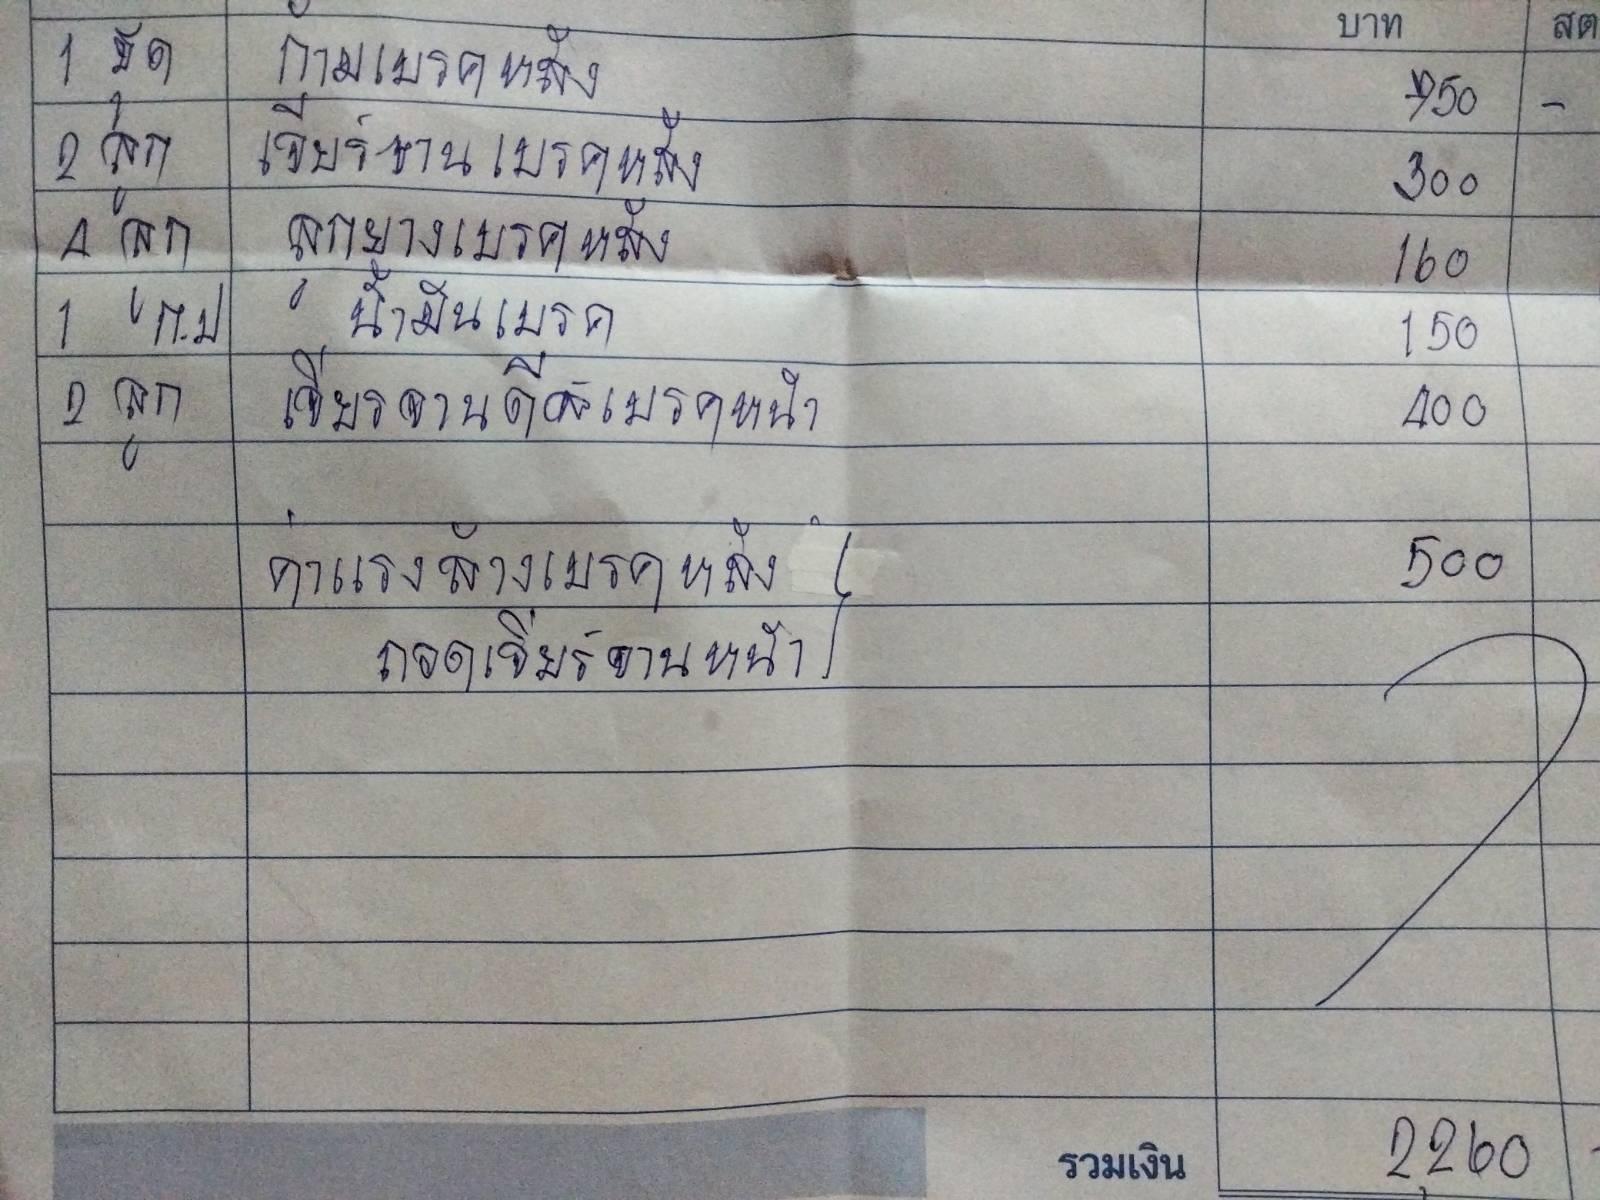 บาท สต
1 ชุด ก้ามเบรคหลัง 750 -
2 ลูก เจียร์จานเบรคหลัง 300
4 ลูก ลูกยางเบรคหลัง 160
1 ก.ป น้ำมันเบรค 150
2 ลูก เจียรจานดีสเบรคหน้า 400
ค่าแรงล้างเบรคหลัง 500
ถอดเจียร์จานหน้า
รวมเงิน 2,260